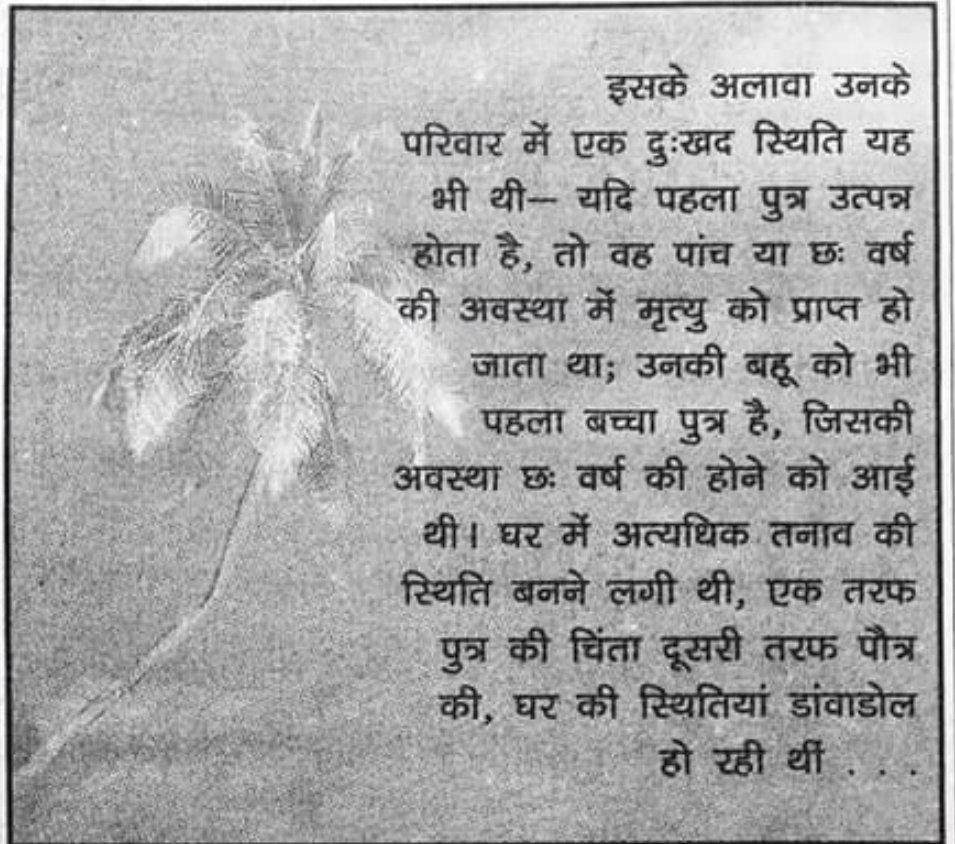 इसके अलावा उनके
परिवार में एक दुःखद स्थिति यह
भी थी— यदि पहला पुत्र उत्पन्न
होता है, तो वह पांच या छः वर्ष
की अवस्था में मृत्यु को प्राप्त हो
जाता था; उनकी बहू को भी
पहला बच्चा पुत्र है, जिसकी
अवस्था छः वर्ष की होने को आई
थी। घर में अत्यधिक तनाव की
स्थिति बनने लगी थी, एक तरफ
पुत्र की चिंता दूसरी तरफ पौत्र
की, घर की स्थितियां डांवाडोल
हो रही थीं . . .